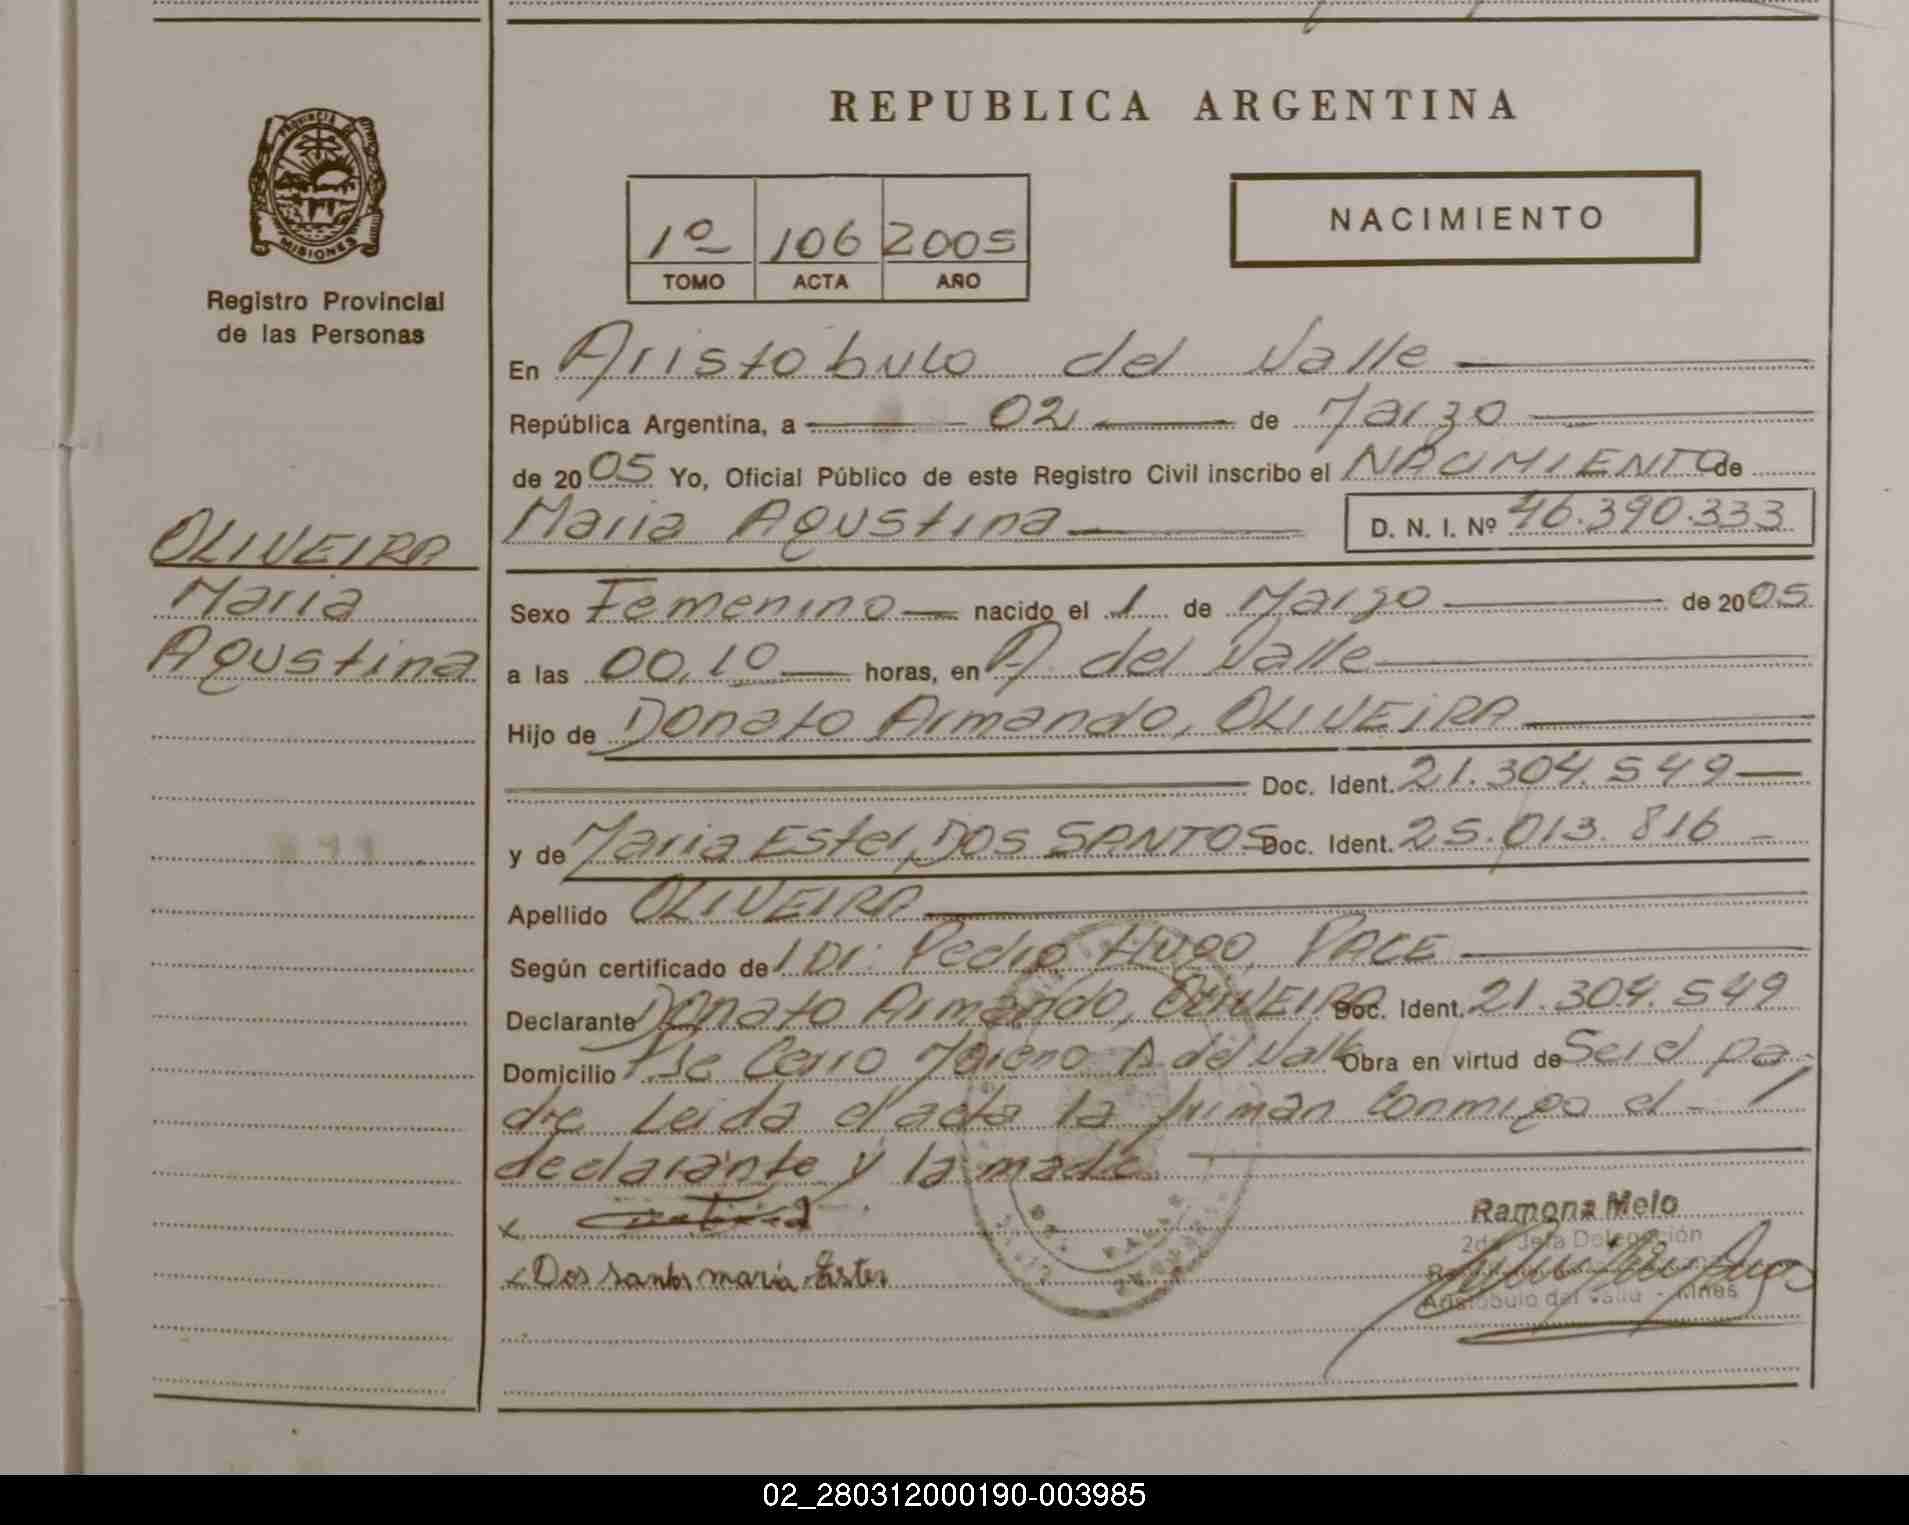 REPUBLICA ARGENTINA
PROVINCIA DE
MISIONES
Registro Provincial
de las Personas
1º 106 2005
TOMO ACTA AÑO
NACIMIENTO
En Aristobulo del Valle
República Argentina, a 02 de Marzo
de 2005 Yo, Oficial Público de este Registro Civil inscribo el NACIMIENTO de
Maria Agustina D. N. I. Nº 46.390.333
OLIVEIRA
Maria
Agustina
Sexo Femenino nacido el 1 de Marzo de 2005
a las 00,10 horas, en A. del Valle
Hijo de Donato Armando, OLIVEIRA
Doc. Ident. 21.304.549
y de Maria Ester, DOS SANTOS Doc. Ident. 25.013.816
Apellido OLIVEIRA
Según certificado de l Dr. Pedro Hugo, PACE
Declarante Donato Armando, OLIVEIRA Doc. Ident. 21.304.549
Domicilio Pje Cerro Moreno A del Valle Obra en virtud de Ser el pa-
dre Leida el acta la firman Conmigo el
declarante y la madre
x
x Dos santos maria Ester
Ramona Melo
2da Jefa Delegación
Aristóbulo del Valle - Mnes
02_280312000190-003985